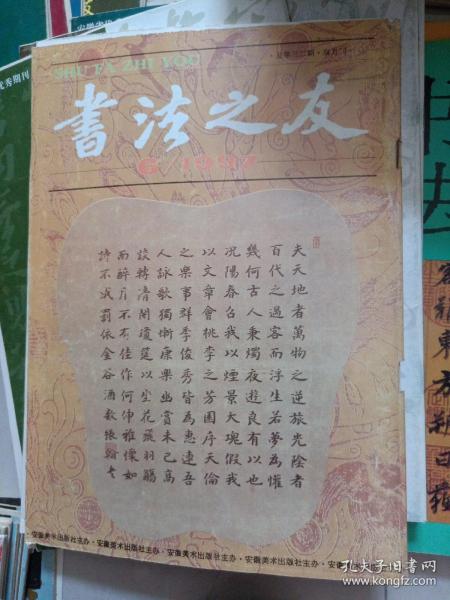 优秀期刊
SHU FA ZHI YOU
書法之友
6/1997
夫天地者萬物之逆旅光陰者
百代之過客而浮生若夢為懽
幾何古人秉燭夜遊良有以也
況陽春召我以煙景大塊假我
以文章會桃李之芳園序天倫
之樂事群季俊秀皆為惠連吾
人詠歌獨慚康樂幽賞未已高
談轉清開瓊筵以坐花飛羽觴
而醉月不有佳作何伸雅懷如
詩不成罰依金谷酒數
·安徽美术出版社主办·安徽美术出版社主办·安徽美术出版社主办·安徽美术出版社主办·
東方朔曰
孔夫子旧书网
www.kongfz.com